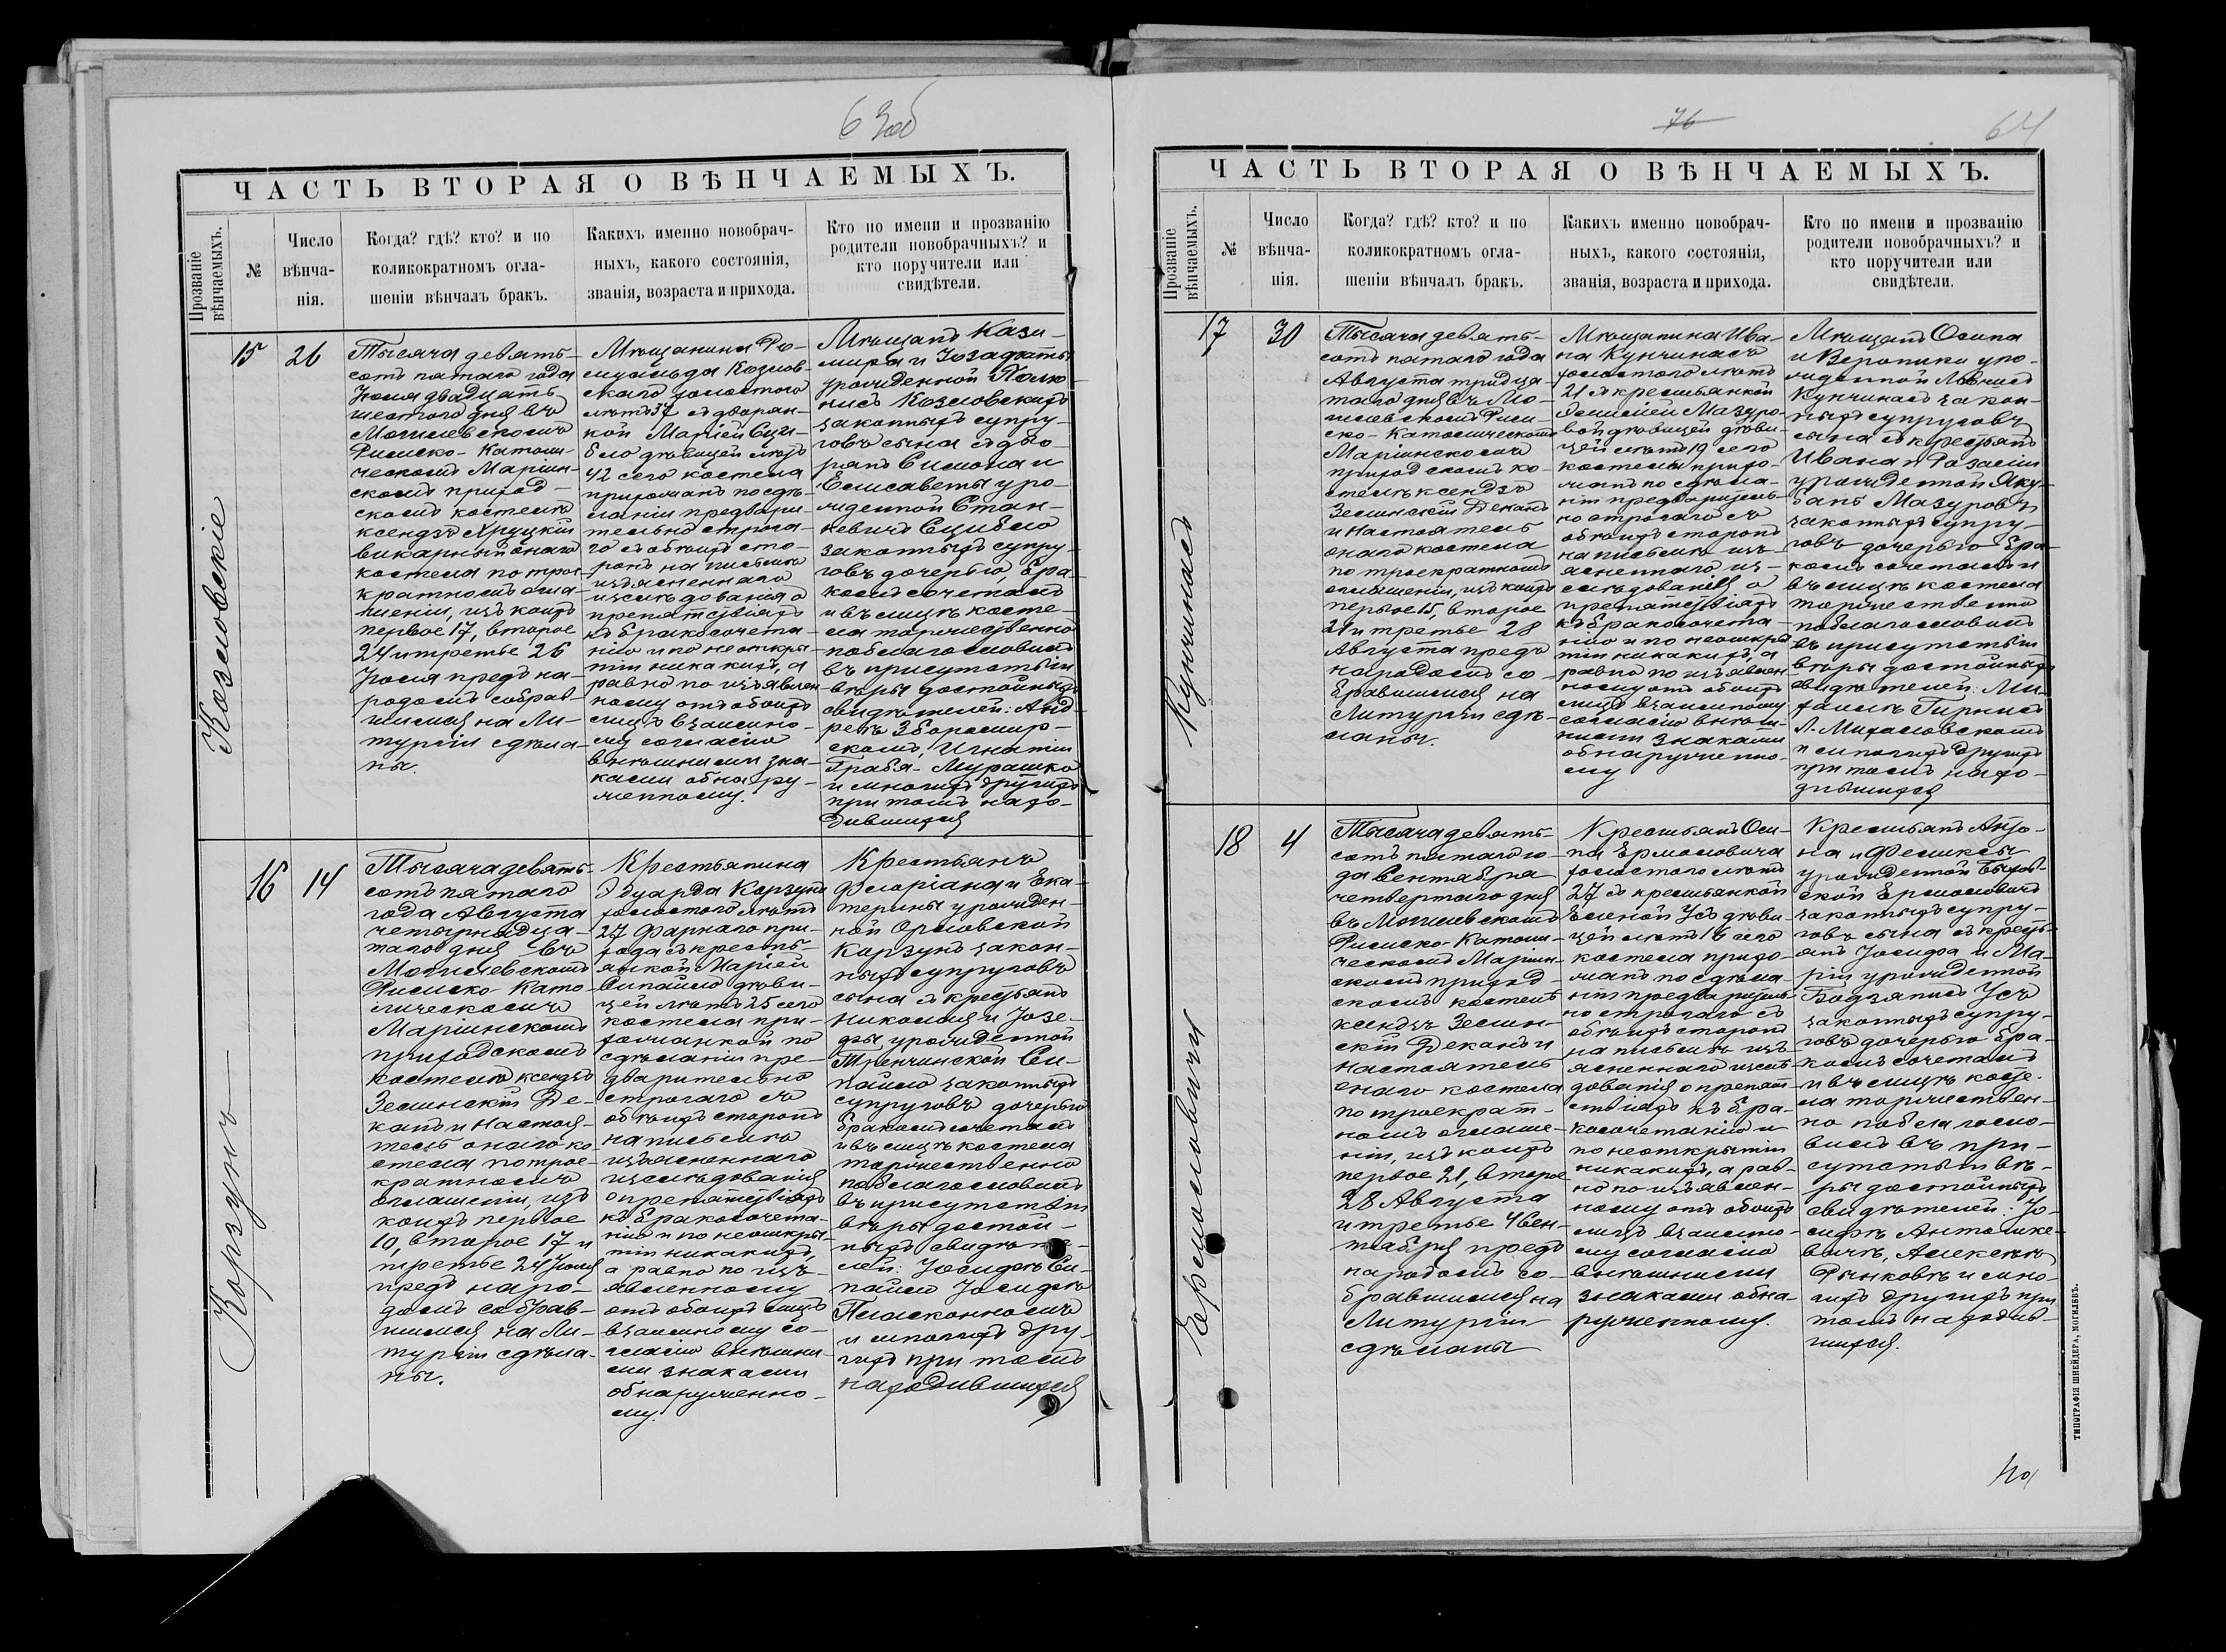 63об
ЧАСТЬ ВТОРАЯ О ВѢНЧАЕМЫХЪ.
Прозваніе вѣнчаемыхъ.
№
Число
вѣнча-
нія.
Когда? гдѣ? кто? и по
коликократномъ огла-
шеніи вѣнчалъ бракъ.
Какихъ именно новобрач-
ныхъ, какого состоянія,
званія, возраста и прихода.
Кто по имени и прозванію
родители новобрачныхъ? и
кто поручители или
свидѣтели.
Козловскіе
15
26
Тысяча девять-
сотъ пятаго года
Іюля двадцать
шестого дня въ
Могилевскомъ
Римско-Католи-
ческомъ Маріин-
скомъ приход-
скомъ костелѣ
ксендзъ Хруцкій
викарный онаго
костела по трое-
кратномъ огла-
шеніи, изъ коихъ
первое 17, второе
24 и третье 26
Іюля предъ на-
родомъ собрав-
шимся на Ли-
тургіи сдѣла-
ны.
Мѣщанина Ро-
муальда Козлов-
скаго холостого
лѣтъ 37 съ дворян-
кой Маріей Сци-
бло дѣвицей лѣтъ
42 сего костела
прихожанъ по сдѣ-
ланіи предвари-
тельно строга-
го съ обѣихъ сто-
ронъ на письмѣ
изъясненнаго
изслѣдованія о
препятствіяхъ
къ бракосочета-
нію и по неоткры-
тіи никакихъ, а
равно по изъявлен-
ному отъ обоихъ
лицъ взаимно-
му согласію
внѣшними зна-
ками обнару-
женному.
Мѣщанъ Кази-
мира и Іозафаты
урожденной Полю-
нисъ Козловскихъ
законныхъ супру-
говъ сына съ дво-
рянъ Симона и
Елисаветы уро-
жденной Стан-
кевичъ Сцибло
законныхъ супру-
говъ дочерью, бра-
комъ сочеталъ
и въ лицѣ косте-
ла торжественно
поблагословилъ
въ присутствіи
вѣры достойныхъ
свидѣтелей: Анд-
реѣ Збромир-
скомъ, Игнатіи
Грабя-Мурашко
и многихъ другихъ
при томъ нахо-
дившихся
Корзунъ
16
14
Тысяча девять-
сотъ пятаго
года Августа
четырнадца-
таго дня въ
Могилевскомъ
Римско-Като-
лическомъ
Маріинскомъ
приходскомъ
костелѣ ксендзъ
Землинскій Де-
канъ и Настоя-
тель онаго ко-
стела по трое-
кратномъ
оглашеніи, изъ
коихъ первое
10, второе 17 и
третье 24 Іюля
предъ наро-
домъ собрав-
шимся на Ли-
тургіи сдѣла-
ны.
Крестьянина
Эдуарда Корзуна
холостого лѣтъ
27 Фарнаго при-
хода съ кресть-
янкой Маріей
Випайло дѣви-
цей лѣтъ 25 сего
костела при-
хожанкой по
сдѣланіи пре-
дварительно
строгаго съ
обѣихъ сторонъ
на письмѣ
изъясненнаго
изслѣдованія
о препятствіяхъ
къ бракосочета-
нію и по неоткры-
тіи никакихъ,
а равно по изъ-
явленному
отъ обоихъ лицъ
взаимному со-
гласію внѣшни-
ми знаками
обнаруженно-
му.
Крестьянъ
Флоріана и Ека-
терины урожден-
ной Орловской
Корзунъ закон-
ныхъ супруговъ
сына съ крестьянъ
Николая и Іозе-
фы урожденной
Тренчинской Ви-
пайло законныхъ
супруговъ дочерью
бракомъ сочеталъ
и въ лицѣ костела
торжественно
поблагословилъ
въ присутствіи
вѣры достой-
ныхъ свидѣте-
лей: Іосифѣ Ви-
пайло Іосифѣ
и многихъ дру-
гихъ при томъ
находившихся
76
64
ЧАСТЬ ВТОРАЯ О ВѢНЧАЕМЫХЪ.
Прозваніе вѣнчаемыхъ.
№
Число
вѣнча-
нія.
Когда? гдѣ? кто? и по
коликократномъ огла-
шеніи вѣнчалъ бракъ.
Какихъ именно новобрач-
ныхъ, какого состоянія,
званія, возраста и прихода.
Кто по имени и прозванію
родители новобрачныхъ? и
кто поручители или
свидѣтели.
Кунчинасъ
17
30
Тысяча девять-
сотъ пятаго года
Августа тридца-
таго дня въ Мо-
гилевскомъ Рим-
ско-Католическомъ
Маріинскомъ
приходскомъ ко-
стелѣ ксендзъ
Землинскій Деканъ
и Настоятель
онаго костела
по троекратномъ
оглашеніи, изъ коихъ
первое 15, второе
21 и третье 28
Августа предъ
народомъ со-
бравшимся на
Литургіи сдѣ-
ланы.
Мѣщанина Ива-
на Кунчинасъ
холостого лѣтъ
21 съ крестьянкой
Мазуро-
вой дѣвицей дѣви-
цей лѣтъ 19 сего
костела прихо-
жанъ по сдѣла-
ніи предваритель-
но строгаго съ
обѣихъ сторонъ
на письмѣ изъ-
ясненнаго из-
слѣдованія о
препятствіяхъ
къ бракосочета-
нію и по неоткры-
тіи никакихъ, а
равно по изъявлен-
ному отъ обоихъ
лицъ взаимному
согласію внѣш-
ними знаками
обнаруженно-
му
Мѣщанъ Осипа
и Вероники уро-
жденной
Кунчинасъ закон-
ныхъ супруговъ
сына съ крестьянъ
Ивана и Розаліи
урожденной Яку-
банъ Мазуровъ
законныхъ супру-
говъ дочерью бра-
комъ сочеталъ и
въ лицѣ костела
торжественно
поблагословилъ
въ присутствіи
вѣры достойныхъ
свидѣтелей: Ми-
хаилѣ Гирнисъ
Л. Михаловскомъ
и многихъ другихъ
при томъ нахо-
дившихся
Ермоловичи
18
4
Тысяча девять-
сотъ пятаго го-
да Сентября
четвертаго дня
въ Могилевскомъ
Римско-Католи-
ческомъ Маріин-
скомъ приход-
скомъ костелѣ
ксендзъ Землин-
скій Деканъ и
Настоятель
онаго костела
по троекрат-
номъ оглаше-
ніи, изъ коихъ
первое 21, второе
28 Августа
и третье 4 Сен-
тября предъ
народомъ со-
бравшимся на
Литургіи
сдѣланы
Крестьянъ Оси-
па Ермоловича
холостого лѣтъ
27 съ крестьянкой
Еленой Усъ дѣви-
цей лѣтъ 16 сего
костела прихо-
жанъ по сдѣла-
ніи предваритель-
но строгаго съ
обѣихъ сторонъ
на письмѣ изъ-
ясненнаго изслѣ-
дованія о препят-
ствіяхъ къ бра-
косочетанію и
по неоткрытіи
никакихъ, а рав-
но по изъявлен-
ному отъ обоихъ
лицъ взаимно-
му согласію
внѣшними
знаками обна-
руженному.
Крестьянъ Анто-
на и Феликсы
урожденной
Ермоловичъ
законныхъ супру-
говъ сына съ кресть-
янъ Іосифа и Ма-
ріи урожденной
Бодзянисъ Усъ
законныхъ супру-
говъ дочерью бра-
комъ сочеталъ
и въ лицѣ косте-
ла торжествен-
но поблагосло-
вилъ въ при-
сутствіи вѣ-
ры достойныхъ
свидѣтелей: Іо-
сифѣ Антошке-
вичѣ, Алексѣѣ
Рынковѣ и мно-
гихъ другихъ при
томъ находив-
шихся.
ТИПОГРАФІЯ ШНЕЙДЕРА, МОГИЛЕВЪ.